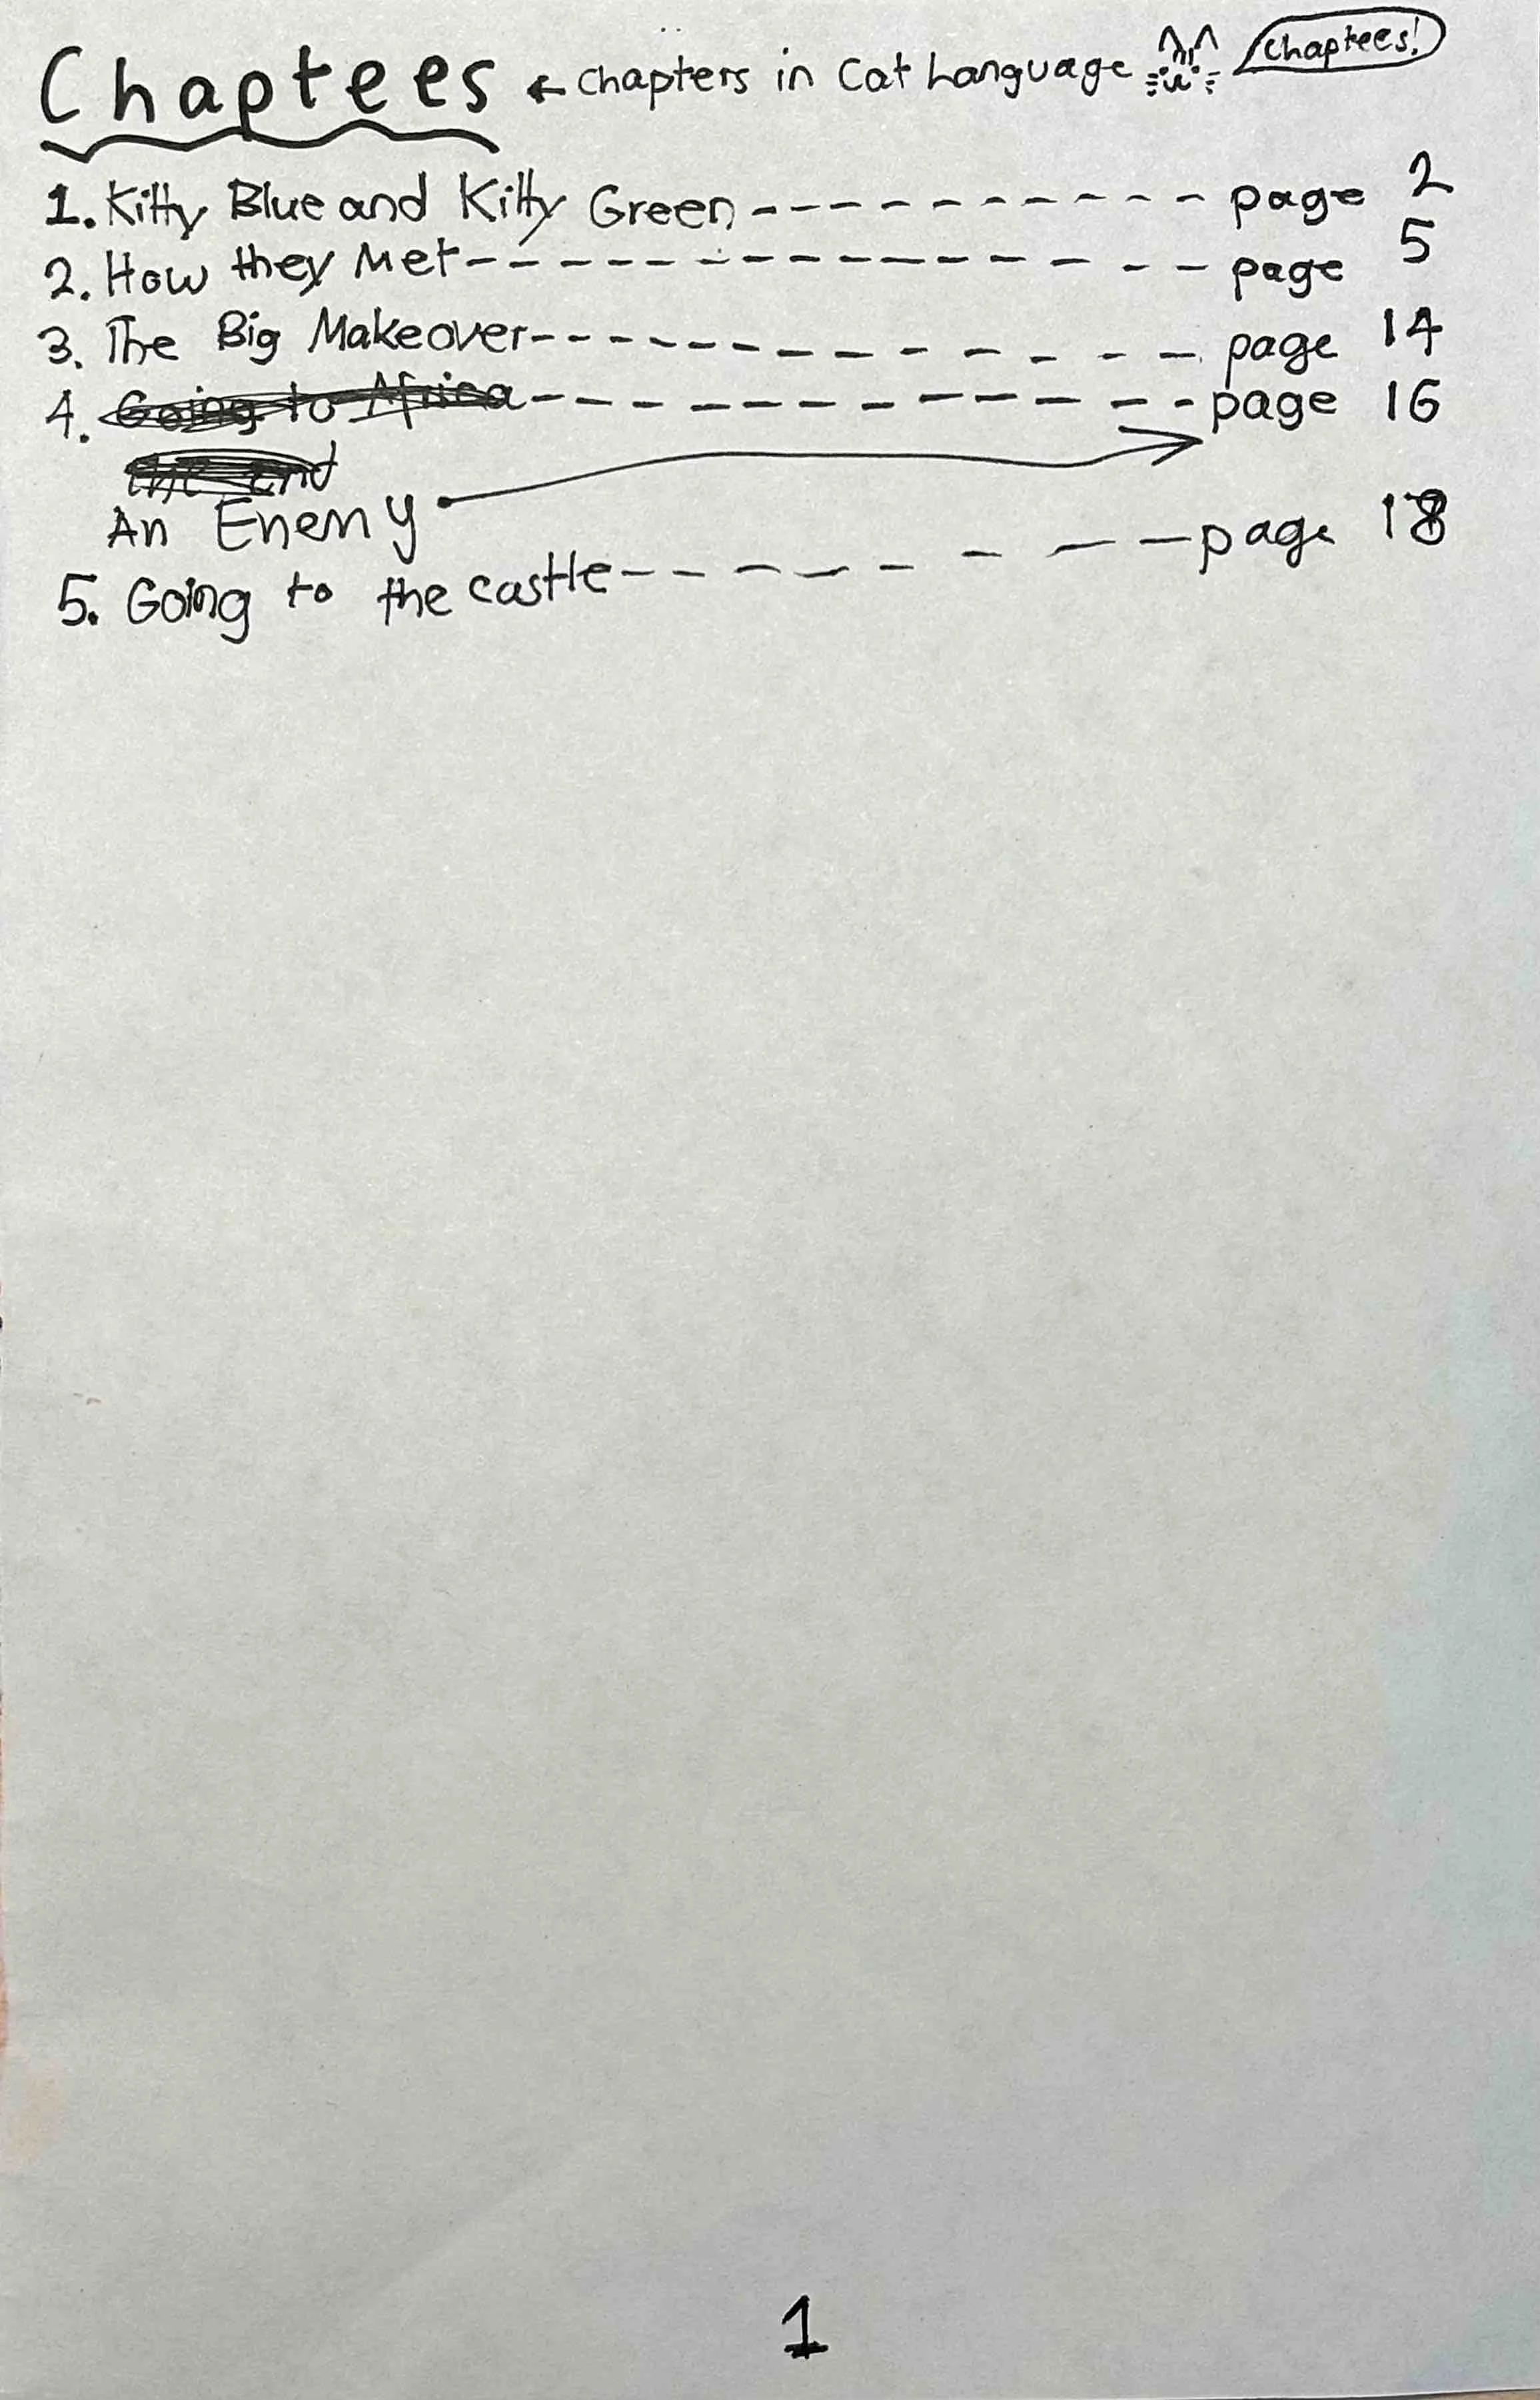 Chaptees ← chapters in Cat Language chaptees!
1. Kitty Blue and Kitty Green ----------- page 2
2. How they Met --------------- page 5
3. The Big Makeover -------------- page 14
4. Going to Africa -------------- page 16
the end
An Enemy
5. Going to the castle -------- page 18
1